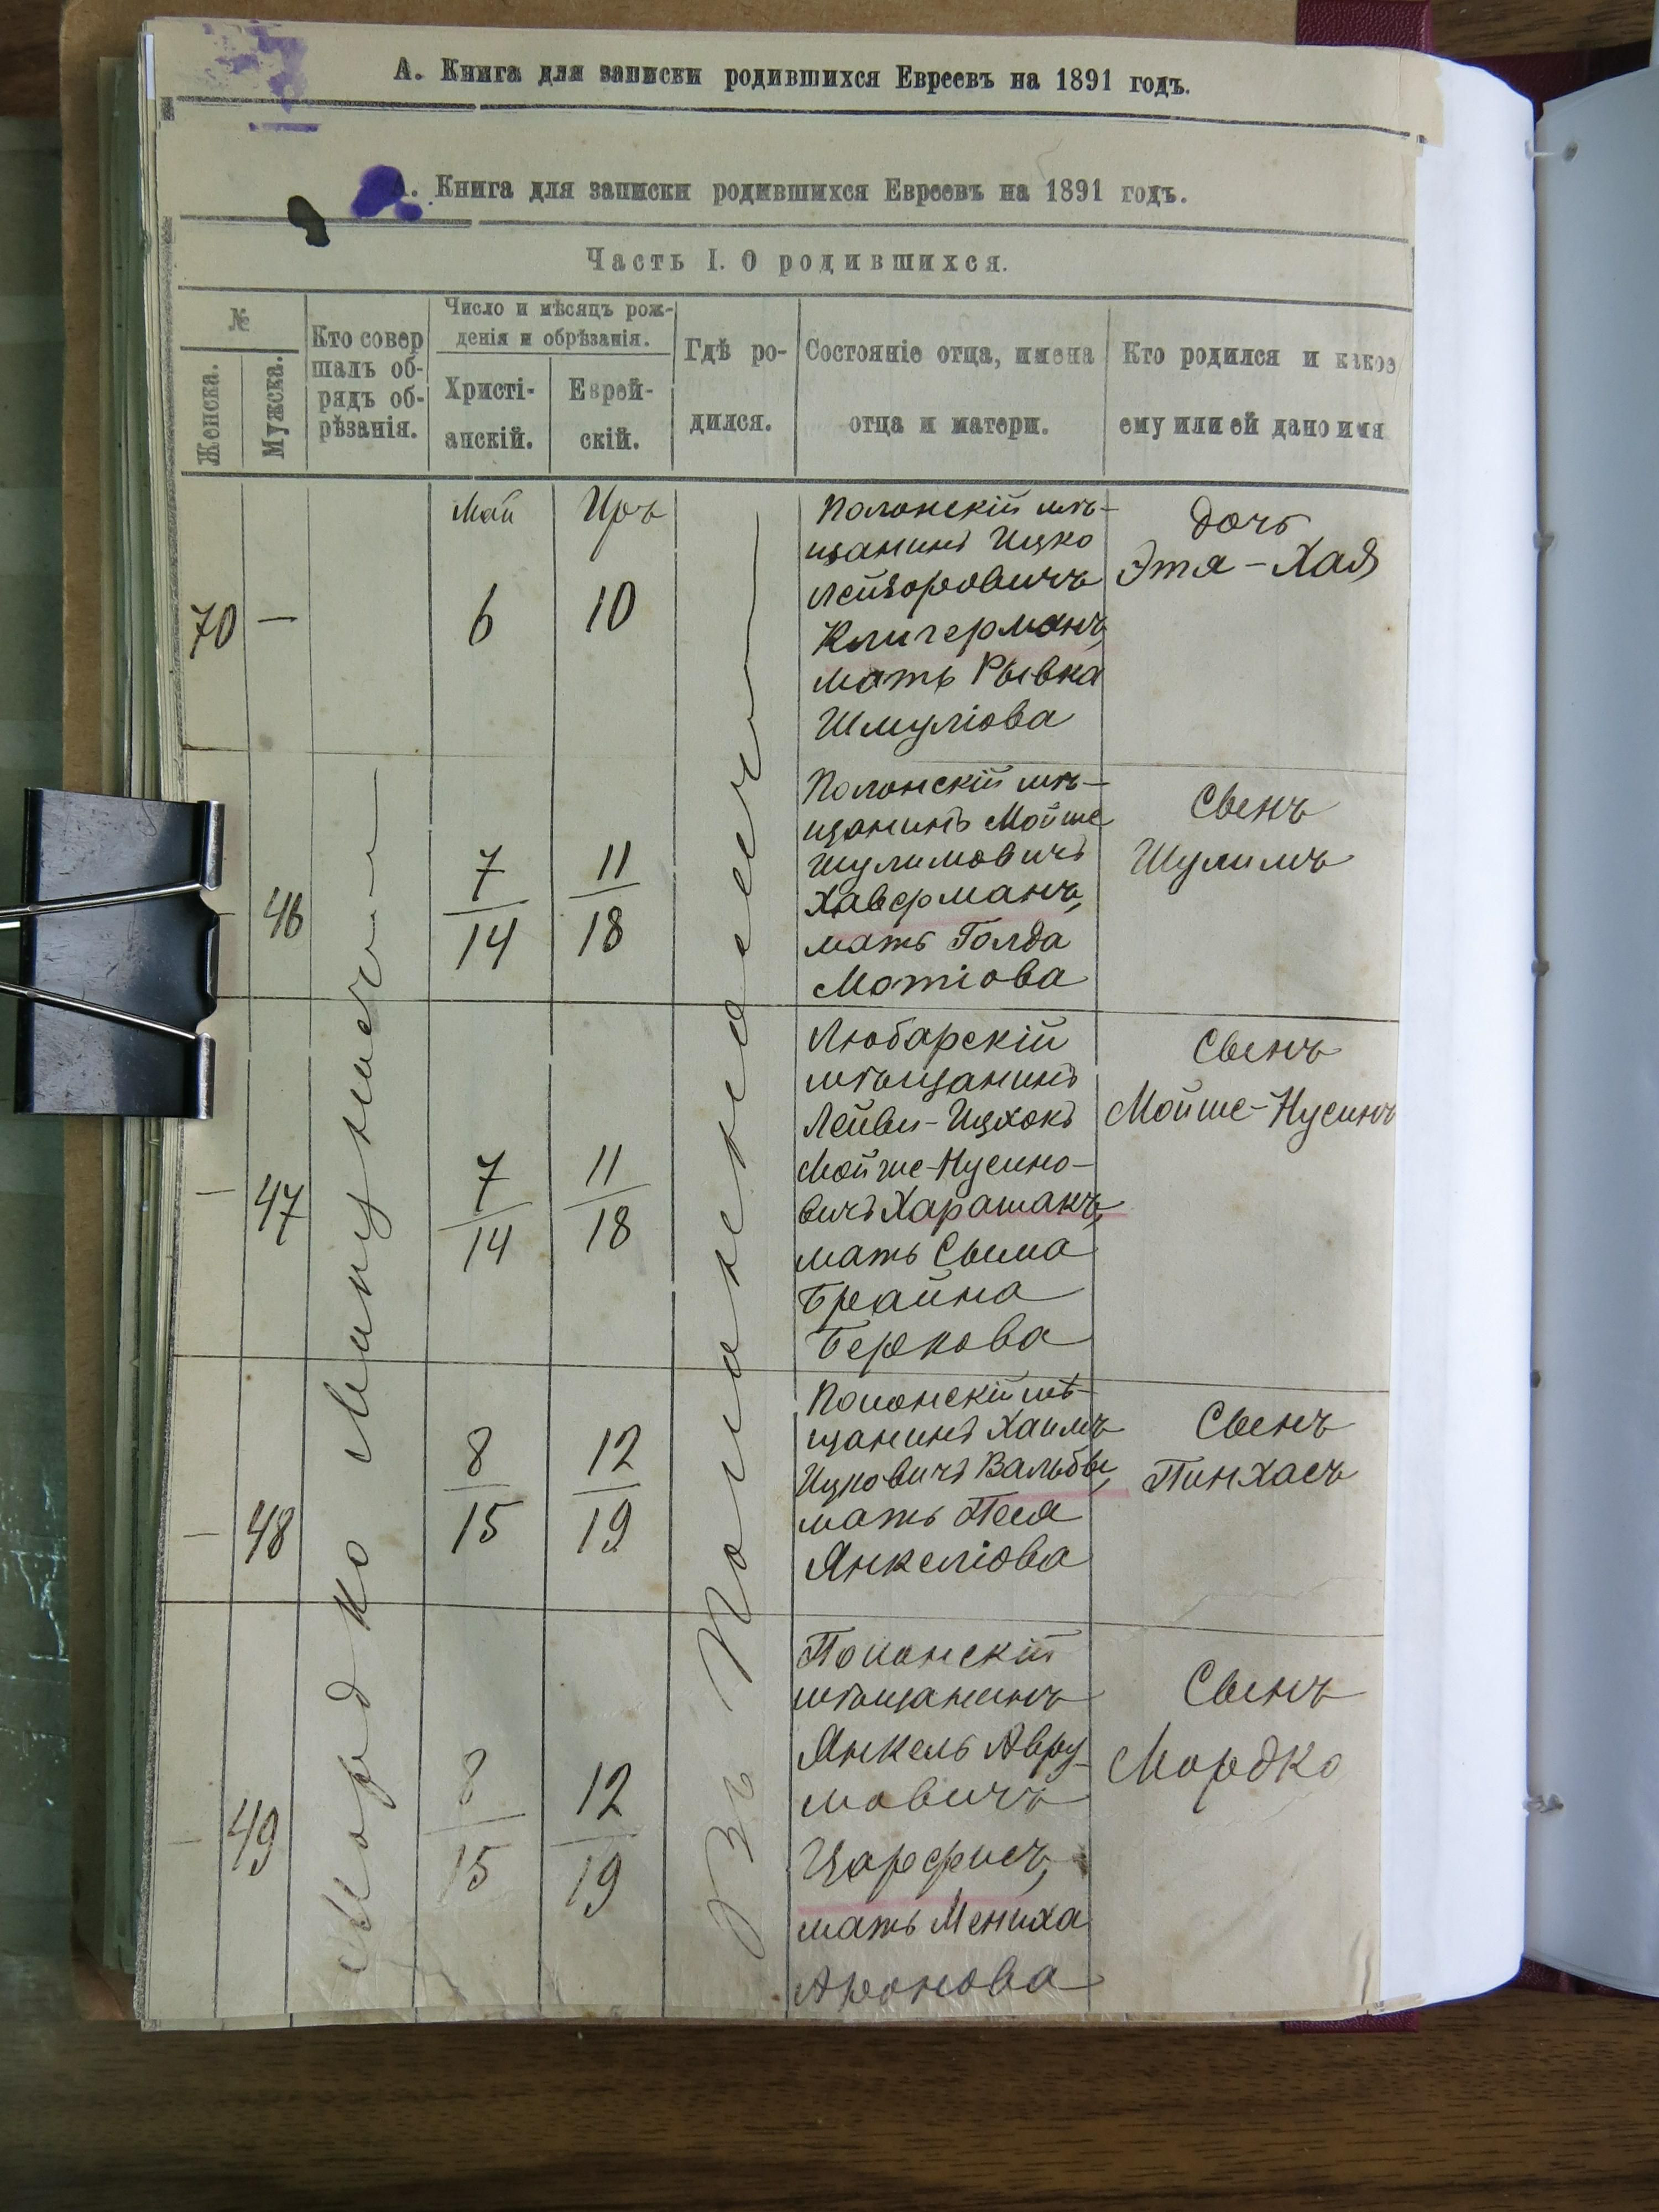 А. Книга для записки родившихся Евреевъ на 1891 годъ.
. Книга для записки родившихся Евреевъ на 1891 годъ.
Часть I. О родившихся.
№
Женска.
Мужска.
Кто совер
шалъ об-
рядъ об-
рѣзанія.
Число и мѣсяцъ рож-
денія и обрѣзанія.
Христі-
анскій.
Еврей-
скій.
Гдѣ ро-
дился.
Состояніе отца, имена
отца и матери.
Кто родился и какое
ему или ей дано имя
Мордко
Въ
70
—
Май
6
Иръ
10
Полонскій мѣ-
щанинъ Ицко
Лейзоровичъ
Клигерманъ,
мать Рывка
Шмуліова
Дочь
Этя-Хая
46
7
14
11
18
Полонскій мѣ-
щанинъ Мойше
Шулимовичъ
Хаверманъ,
мать Голда
Мотіова
Сынъ
Шулимъ
—
47
7
14
11
18
Любарскій
мѣщанинъ
Лейви-Ицхокъ
Мойше-Нусино-
вичъ Харатакъ,
мать Сыма
Брайна
Беркова
Сынъ
Мойше-Нусинъ
—
48
8
15
12
19
Полонскій мѣ-
щанинъ Хаимъ
Ицковичъ Вальбы,
мать Песя
Янкеліова
Сынъ
Пинхасъ
—
49
8
15
12
19
Полонскій
мѣщанинъ
Янкель Авру-
мовичъ
Царфисъ,
мать Мениха
Аронова
Сынъ
Мордко